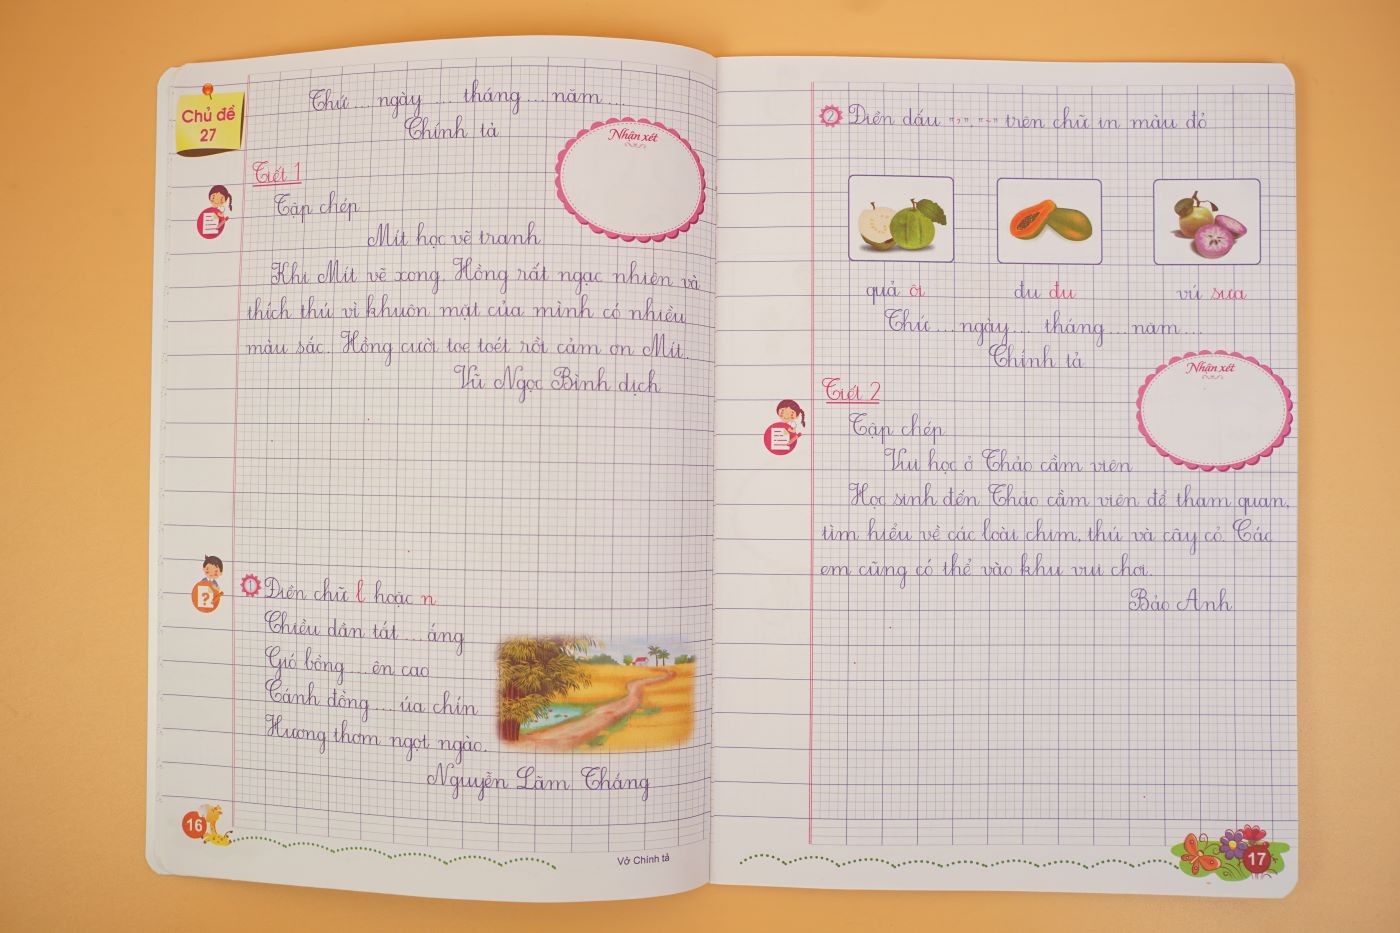 Chủ đề
27
Thứ ... ngày ... tháng ... năm ...
Chính tả
Nhận xét
Tiết 1
Tập chép
Mít học vẽ tranh
Khi Mít vẽ xong, Hồng rất ngạc nhiên và
thích thú vì khuôn mặt của mình có nhiều
màu sắc. Hồng cười toe toét rồi cảm ơn Mít.
Vũ Ngọc Bình dịch
1 Điền chữ l hoặc n
Chiều dần tắt ... áng
Gió bỗng ... ên cao
Cánh đồng ... úa chín
Hương thơm ngọt ngào.
Nguyễn Lãm Thắng
16
Vở Chính tả
2 Điền dấu "?", "~" trên chữ in màu đỏ
quả ôi
đu đu
vú sưa
Thứ ... ngày ... tháng ... năm ...
Chính tả
Nhận xét
Tiết 2
Tập chép
Vui học ở Thảo cầm viên
Học sinh đến Thảo cầm viên để tham quan,
tìm hiểu về các loài chim, thú và cây cỏ. Các
em cũng có thể vào khu vui chơi.
Bảo Anh
17